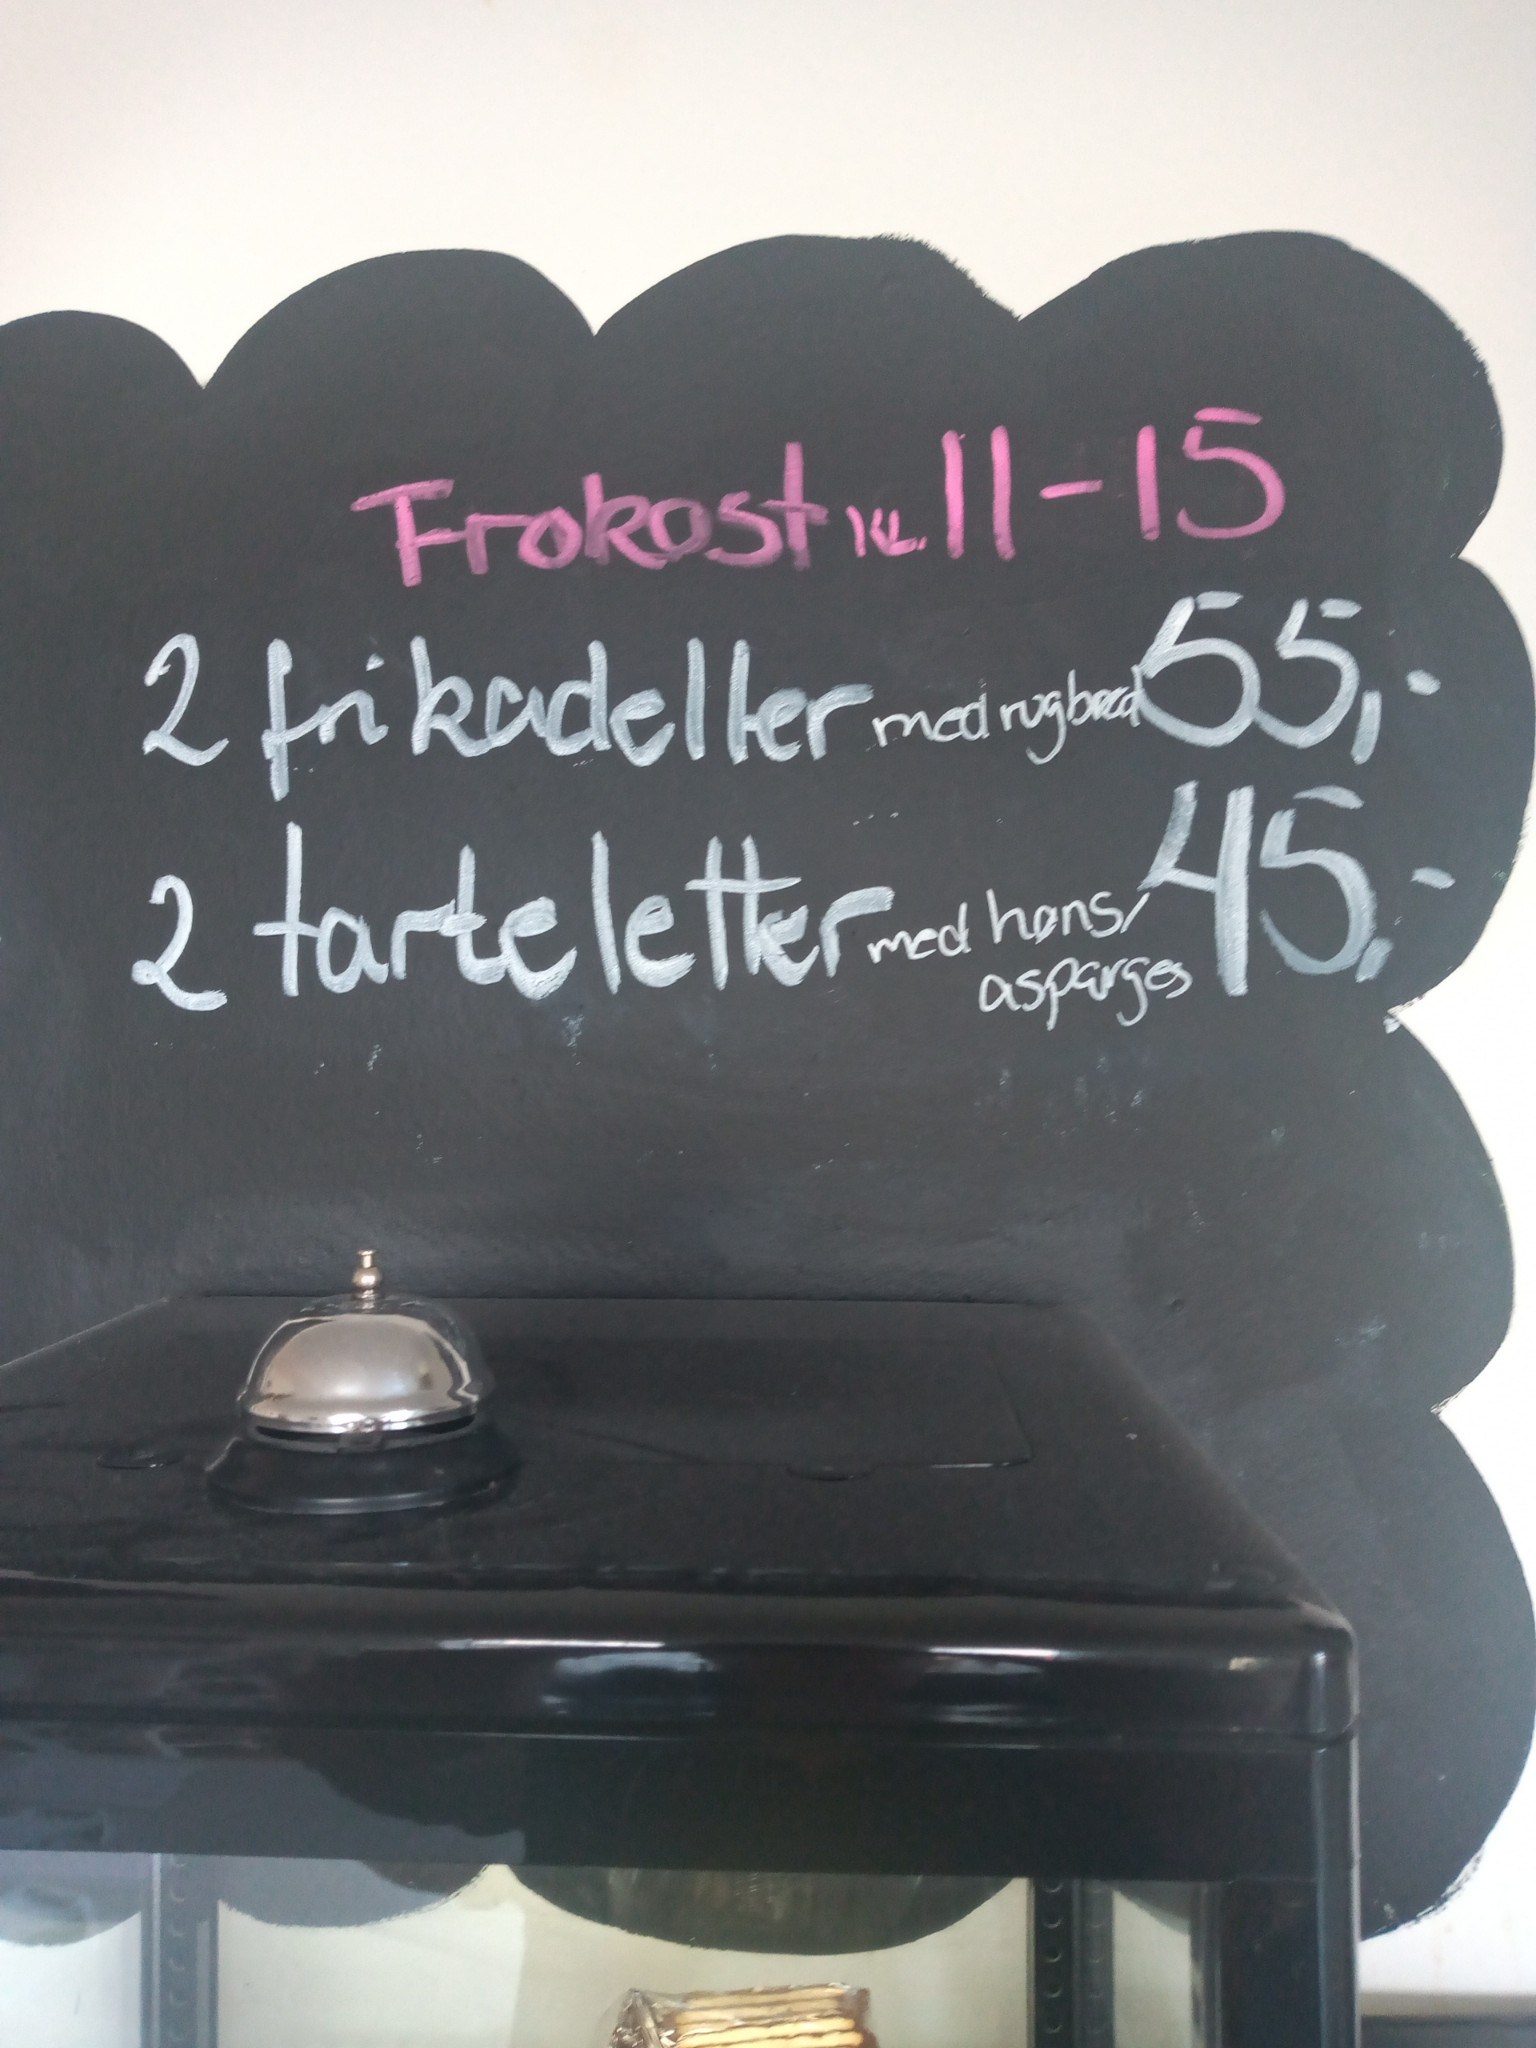 Frokost kl. 11-15
2 frikadeller med rugbrød 55,-
2 tarteletter med høns/ 45,-
asparges